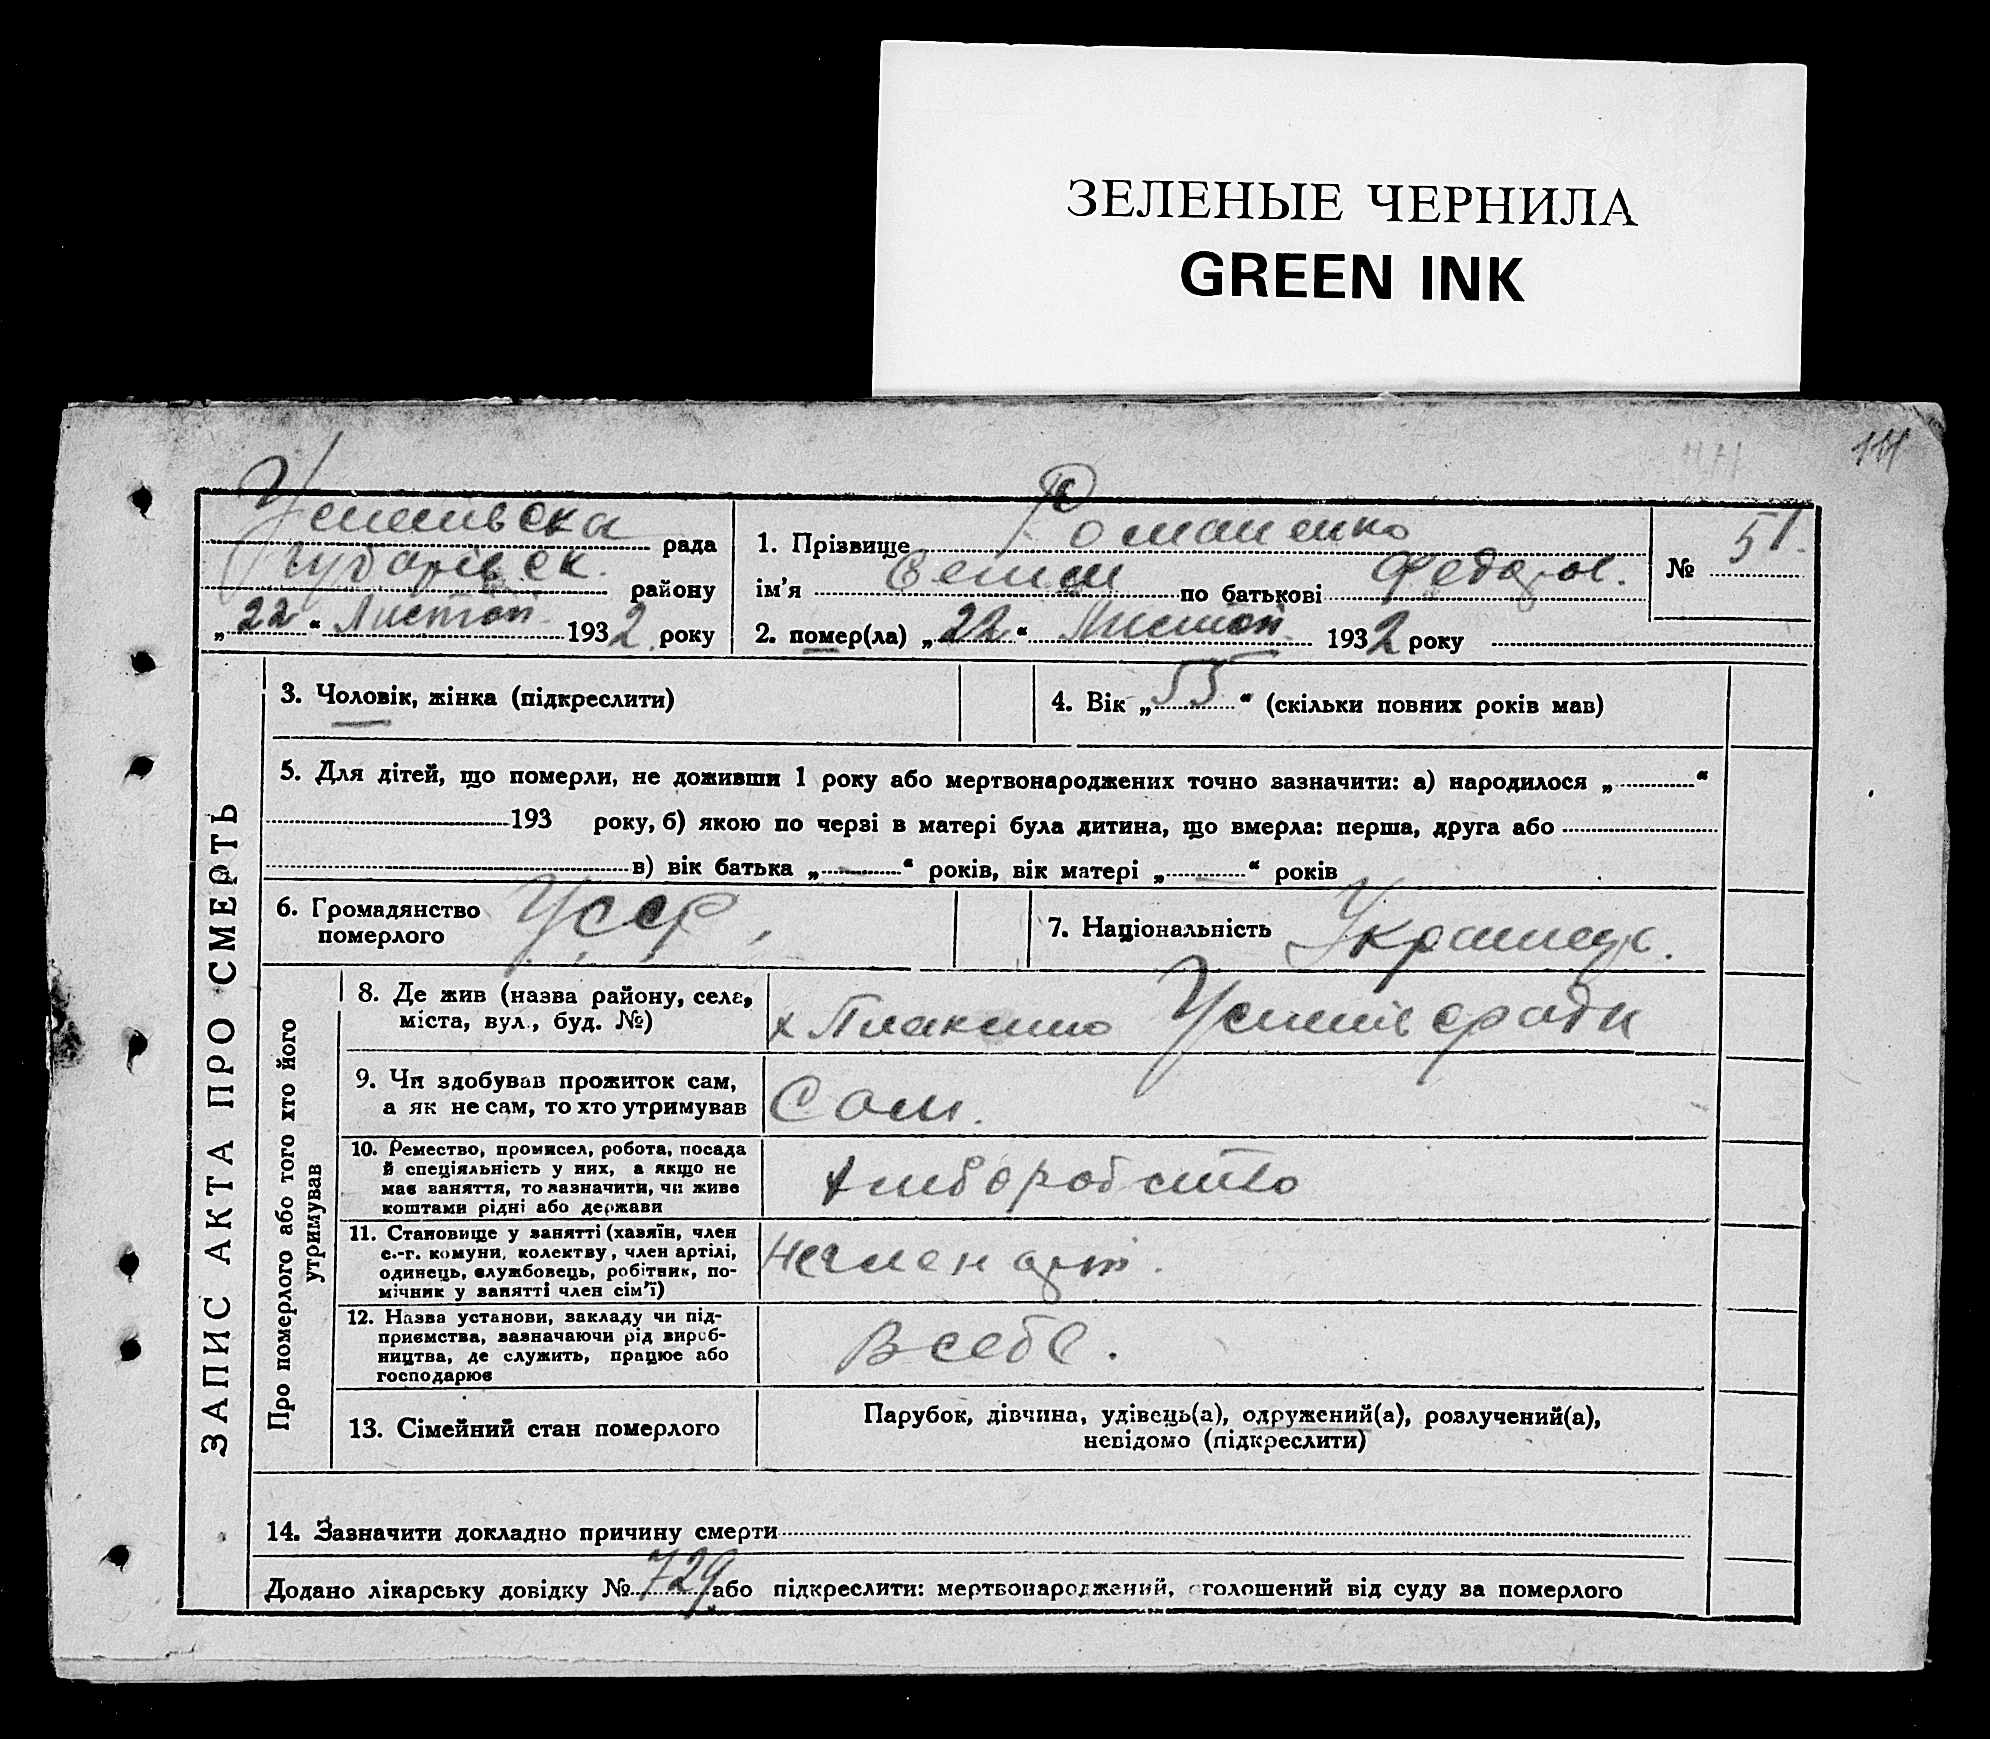 ЗЕЛЕНЫЕ ЧЕРНИЛА
GREEN INK
111
рада
району
„22“ Листоп 1932 року
1. Прізвище Романенко
ім'я по батькові Федоров.
2. помер(ла) „22“ Листоп 1932 року
№ 51.
ЗАПИС АКТА ПРО СМЕРТЬ
3. Чоловік, жінка (підкреслити)
4. Вік „55“ (скільки повних років мав)
5. Для дітей, що померли, не доживши 1 року або мертвонароджених точно зазначити: а) народилося „ “
193 року, б) якою по черзі в матері була дитина, що вмерла: перша, друга або
в) вік батька „ “ років, вік матері „ “ років
6. Громадянство
померлого
УССР,
7. Національність Українец.
Про померлого або того хто його
утримував
8. Де жив (назва району, села,
міста, вул., буд. №)
х
9. Чи здобував прожиток сам,
а як не сам, то хто утримував
Сам.
10. Ремество, промисел, робота, посада
й спеціяльність у них, а якщо не
має заняття, то зазначити, чи живе
коштами рідні або держави
Хлиборобство
11. Становище у занятті (хазяїн, член
с.-г. комуни, колектву, член артілі,
одинець, службовець, робітник, по-
мічник у занятті член сім'ї)
Нечлен арт.
12. Назва установи, закладу чи під-
приємства, зазначаючи рід вироб-
ництва, де служить, працює або
господарює
В себе.
13. Сімейний стан померлого
Парубок, дівчина, удівець(а), одружений(а), розлучений(а),
невідомо (підкреслити)
14. Зазначити докладно причину смерти
Додано лікарську довідку № 729 або підкреслити: мертвонароджений, оголошений від суду за померлого